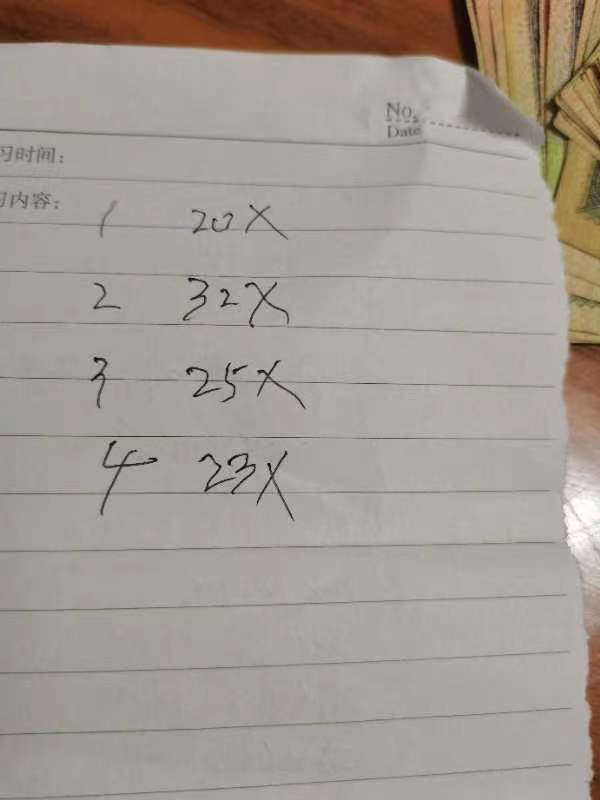 No.
Date
习时间:
习内容:
1 20X
2 32X
3 25X
4 23X